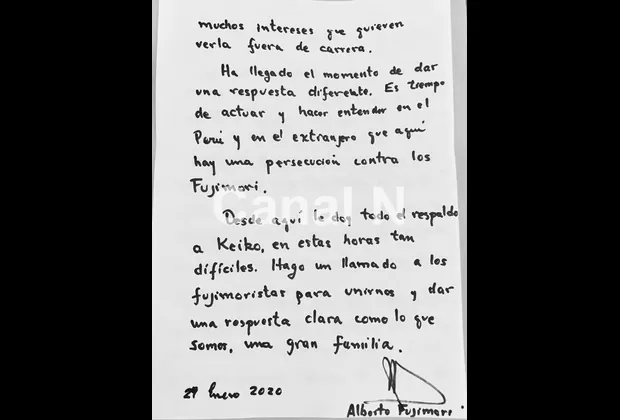 muchos intereses que quieren
verla fuera de carrera.
Ha llegado el momento de dar
una respuesta diferente. Es tiempo
de actuar y hacer entender en el
Perú y en el extranjero que aquí
hay una persecución contra los
Fujimori.
Canal N
Desde aquí le doy todo el respaldo
a Keiko, en estas horas tan
difíciles. Hago un llamado a los
fujimoristas para unirnos y dar
una respuesta clara como lo que
somos, una gran familia.
29 Enero 2020
Alberto Fujimori